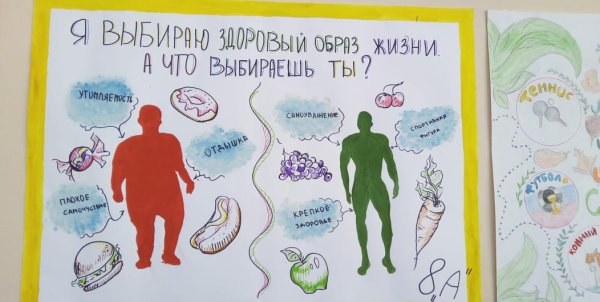 Я ВЫБИРАЮ ЗДОРОВЫЙ ОБРАЗ ЖИЗНИ.
А ЧТО ВЫБИРАЕШЬ ТЫ?
УТОМЛЯЕМОСТЬ
ОТДЫШКА
ПЛОХОЕ
САМОЧУВСТВИЕ
САМОУВАЖЕНИЕ
СПОРТИВНАЯ
ФИГУРА
КРЕПКОЕ
ЗДОРОВЬЕ
8 „А"
ТЕННИС
ФУТБОЛ
КОННЫЙ